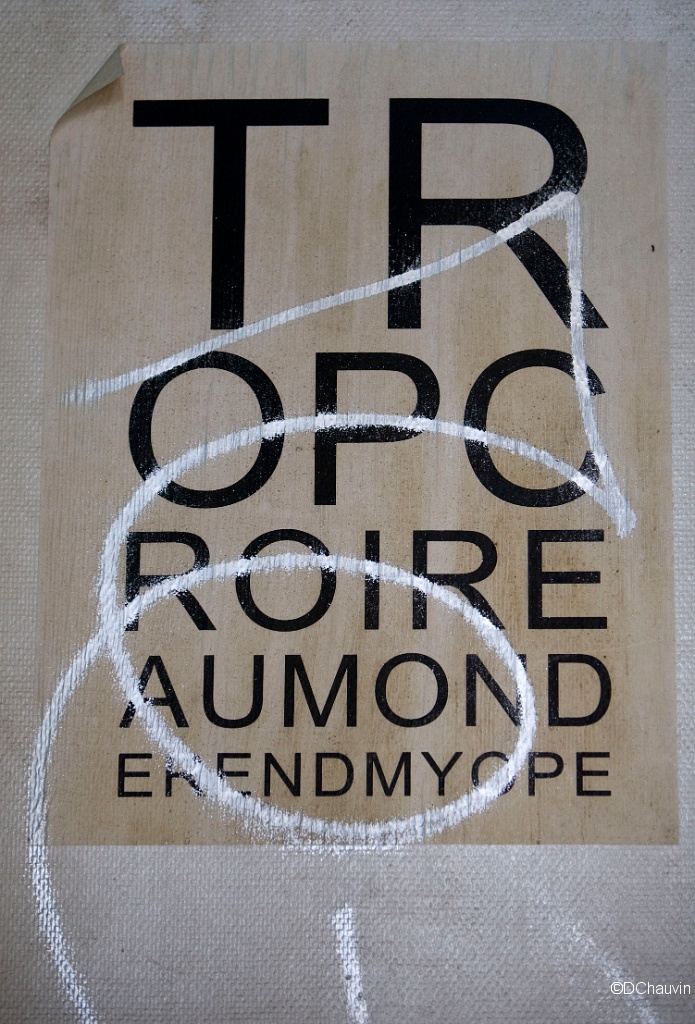 TR
OPC
ROIRE
AUMOND
ERENDMYOPE
©DChauvin